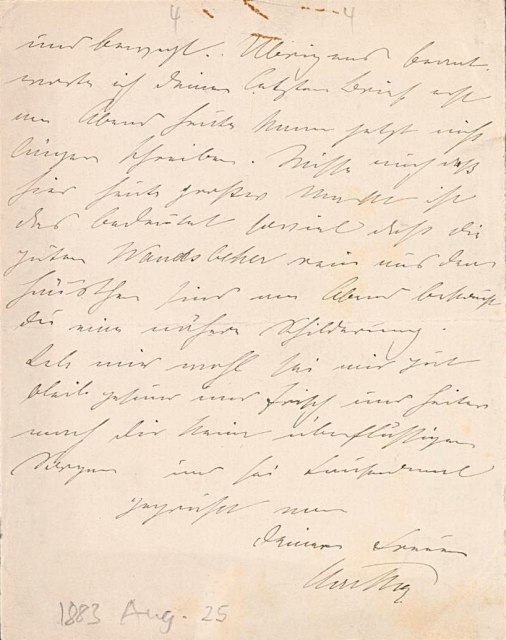 4 4
und bewegt. Übrigens beant-
worte ich Deinen letzten Brief erst
am Abend heute kann jetzt nicht
länger schreiben. Wisse nur daß
hier heute großer Markt ist
das bedeutet soviel daß die
guten Wandsbeker rein aus dem
Häuschen sind am Abend bekommst
Du eine nähere Schilderung.
Leb mir wohl sei mir gut
bleib gesund und frisch und heiter
mach Dir keine überflüssigen
Sorgen und sei tausendmal
gegrüßt von
Deiner treuen
Martha
1883 Aug. 25